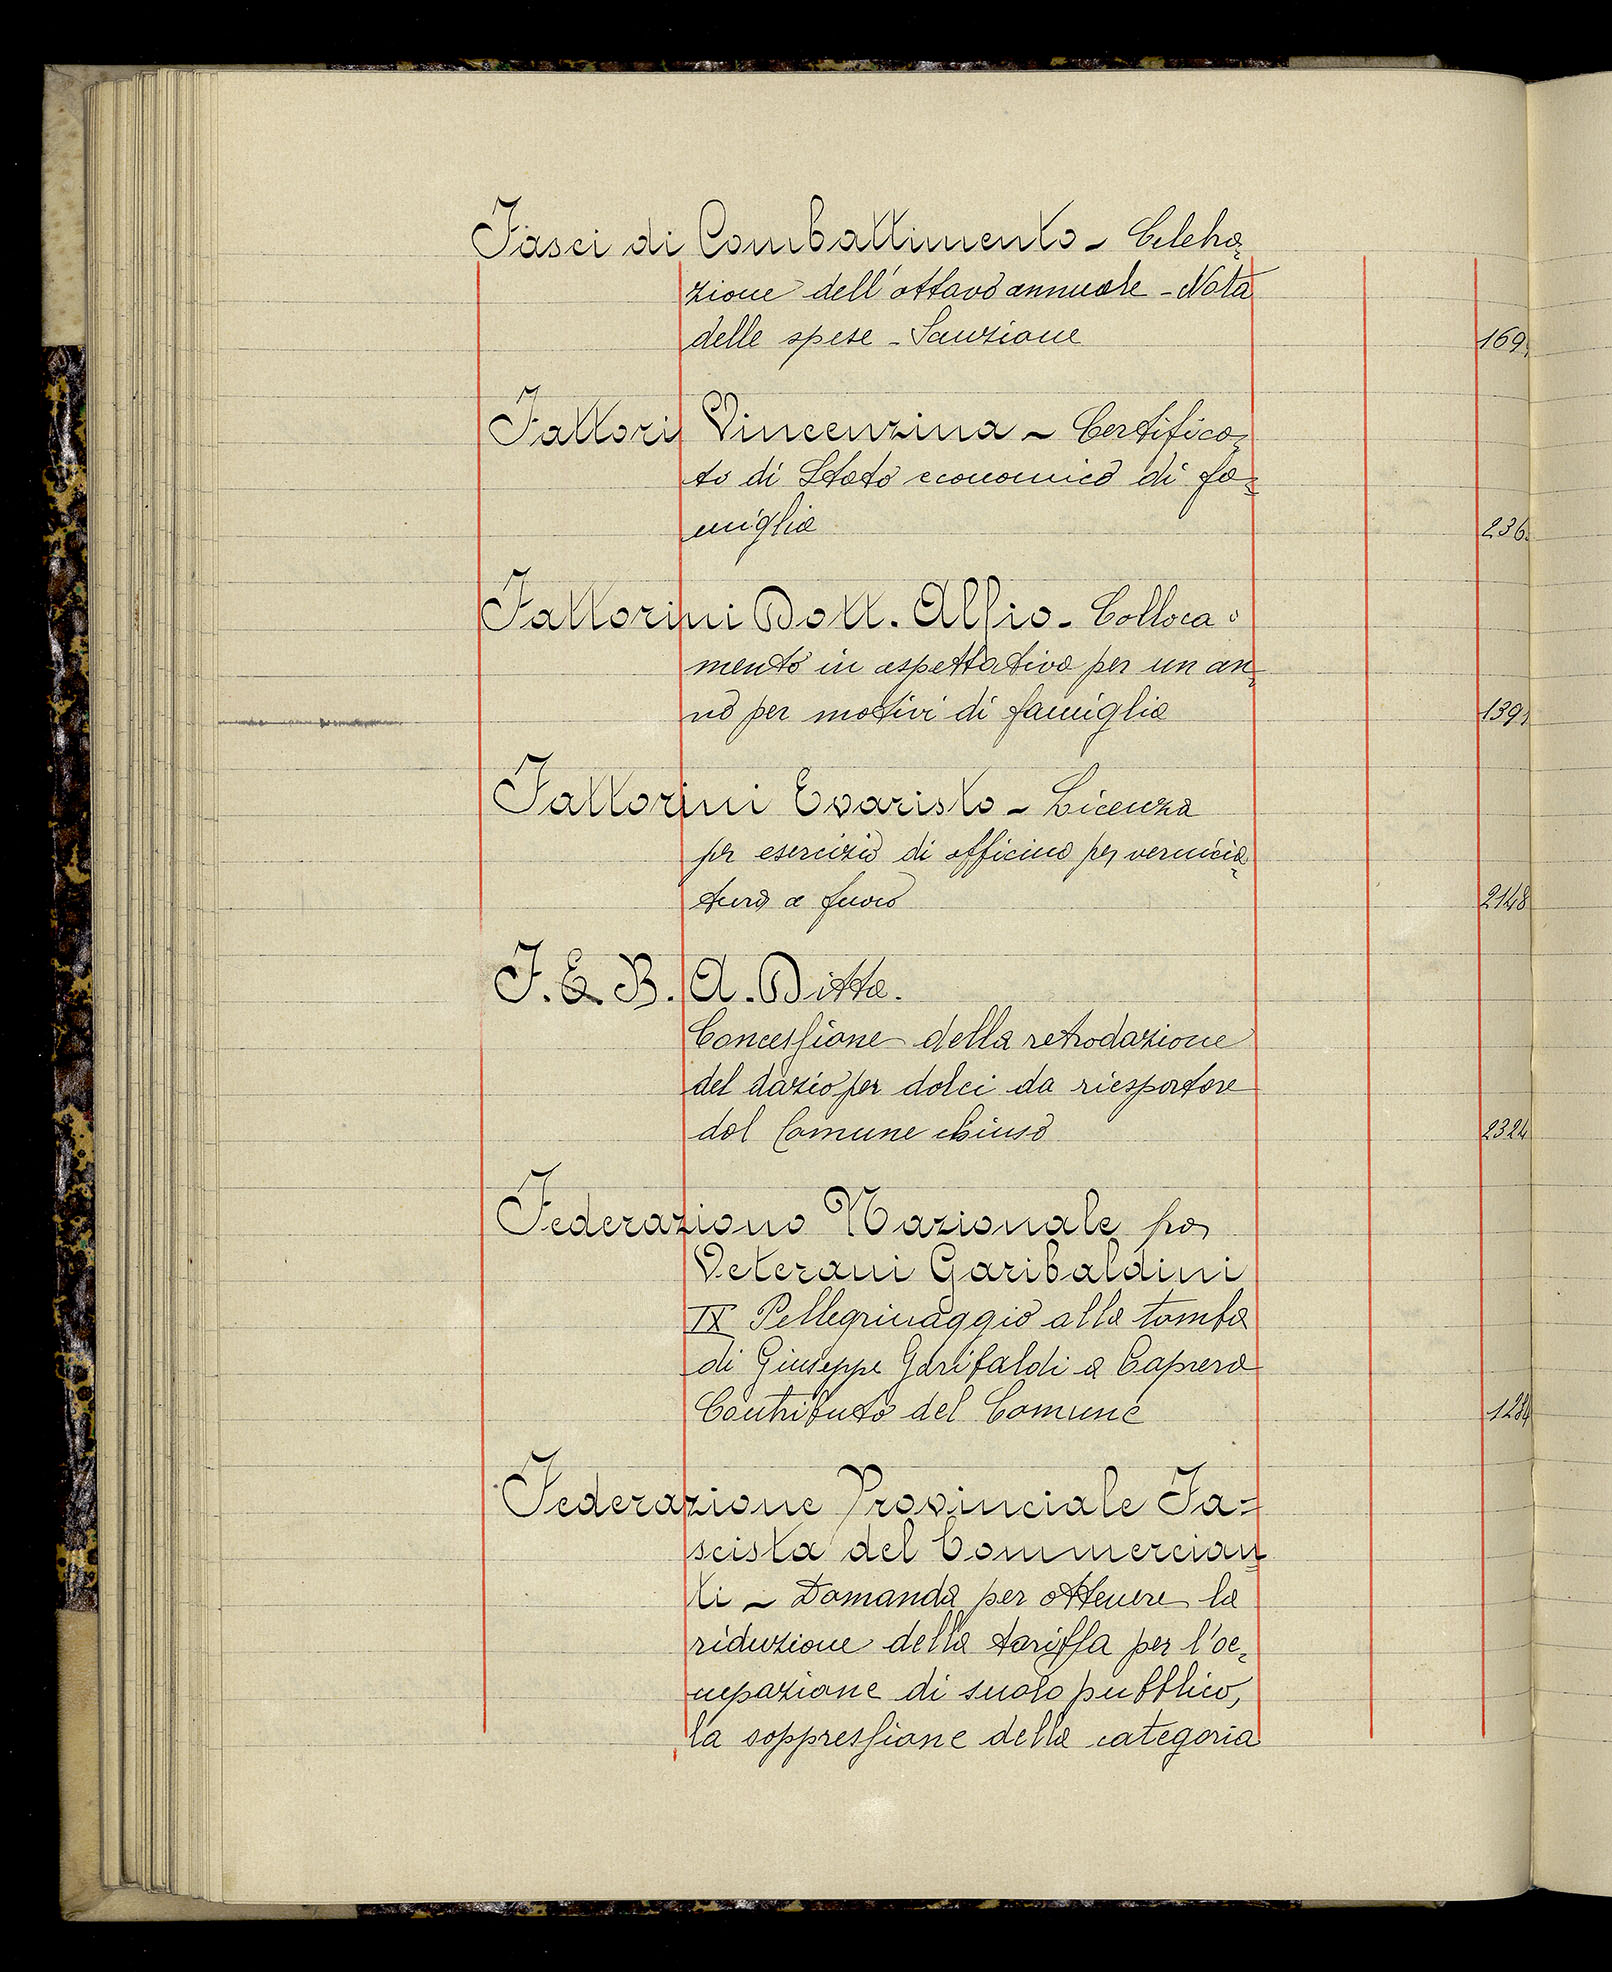 Fasci di Combattimento - Celebra=
zione dell'ottavo annuale - Nota
delle spese - Sanzione
169
Fattori Vincenzina - Certifica=
to di Stato economico di fa=
miglia
236
Fattorini Dott. Alfio - Colloca=
mento in aspettativa per un an=
no per motivi di famiglia
139
Fattorini Evaristo - Licenza
per esercizio di officina per vernicia=
tura a fuoco
2148
F. E. B. A. Ditta.
Concessione della retrodazione
del dazio per dolci da riesportare
dal Comune chiuso
2324
Federazione Nazionale pei
Veterani Garibaldini
IX Pellegrinaggio alla tomba
di Giuseppe Garibaldi a Caprera
Contributo del Comune
Federazione Provinciale Fa=
scista del Commercian
ti - Domanda per ottenere la
riduzione della tariffa per l'oc=
cupazione di suolo pubblico,
la soppressione della categoria